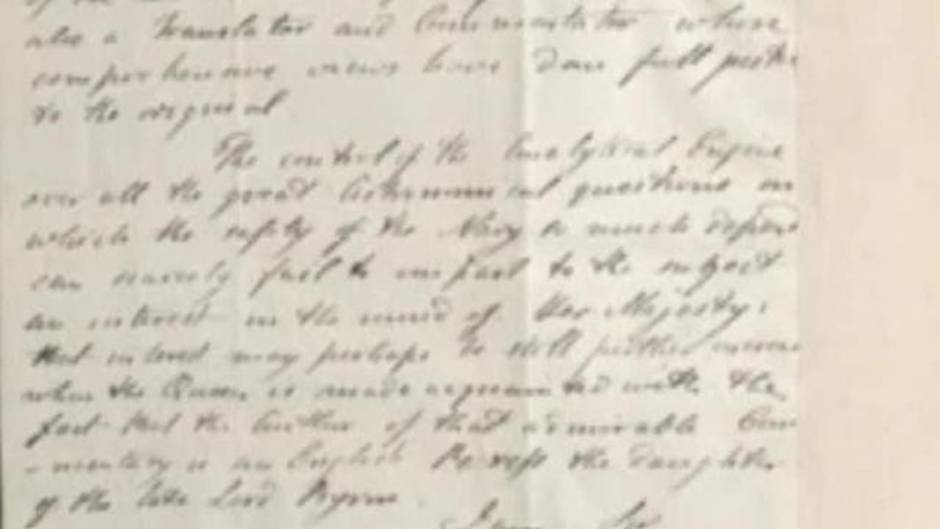 also a Translator and Commentator whose
comprehensive views have done full justice
to the original
The control of the Analytical Engine
over all the great Astronomical questions on
which the safety of the Navy so much depend
can scarcely fail to impart to the subject
an interest in the mind of Her Majesty:
that interest may perhaps be still further
when the Queen is made acquainted with the
fact that the Author of that admirable Com
-mentary is an English Peeress the daughter
of the late Lord Byron.